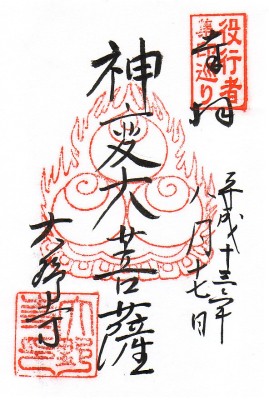 役行者
集印巡り
奉拝
平成十三年
八月十七日
神変大菩薩